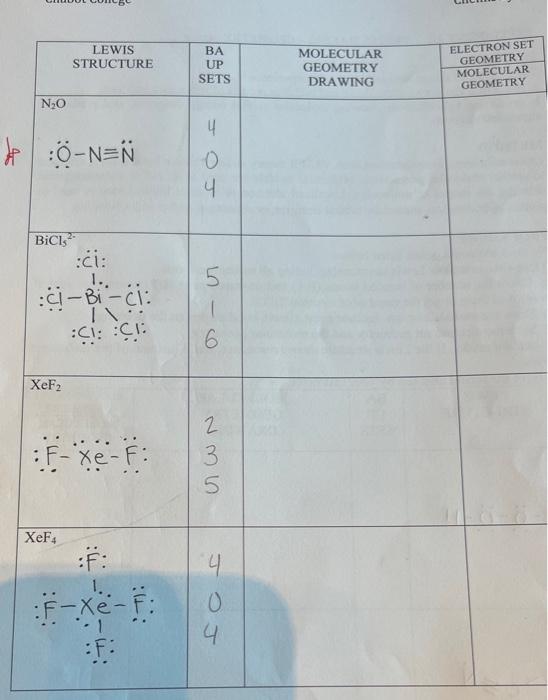 LEWIS STRUCTURE
BA UP SETS
MOLECULAR GEOMETRY DRAWING
ELECTRON SET GEOMETRY
MOLECULAR GEOMETRY
N₂O
:Ö-N≡N̈
4
0
4
BiCl₅²⁻
:Cl:
:Cl-Bi-Cl:
:Cl: :Cl:
5
1
6
XeF₂
:F-Xe-F:
2
3
5
XeF₄
:F:
:F-Xe-F:
:F:
4
0
4